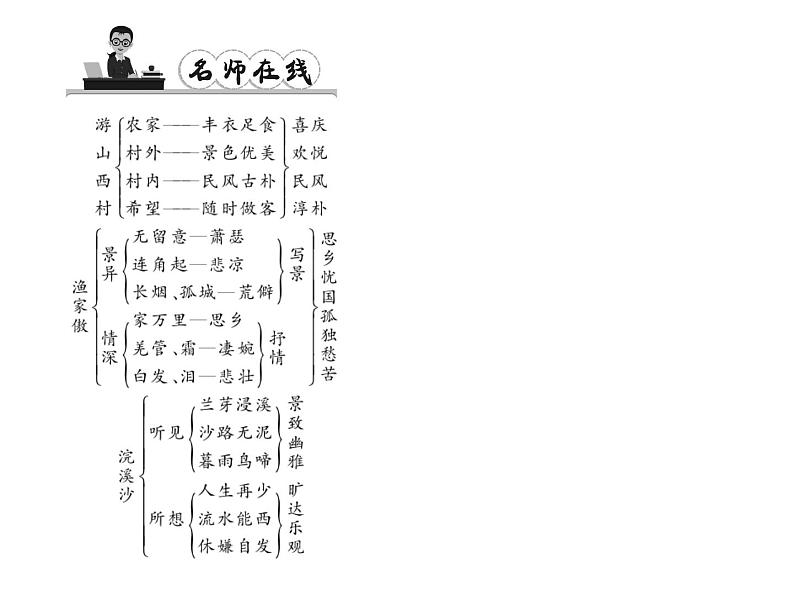 名师在线
游山西村
农家——丰衣足食
村外——景色优美
村内——民风古朴
希望——随时做客
喜庆
欢悦
民风
淳朴
渔家傲
景异
无留意—萧瑟
连角起—悲凉
长烟、孤城—荒僻
写景
情深
家万里—思乡
羌管、霜—凄婉
白发、泪—悲壮
抒情
思乡忧国孤独愁苦
浣溪沙
听见
兰芽浸溪
沙路无泥
暮雨鸟啼
景致幽雅
所想
人生再少
流水能西
休嫌自发
旷达乐观